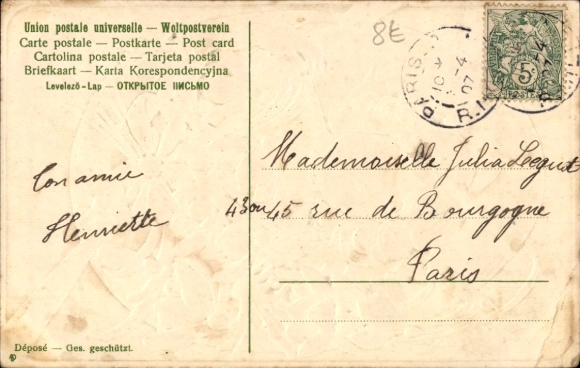 Union postale universelle — Weltpostverein
Carte postale — Postkarte — Post card
Cartolina postale — Tarjeta postal
Briefkaart — Karta Korespondencyjna
Levelező-Lap — ОТКРЫТОЕ ПИСЬМО
8€
PARIS
R.
5
Ton amie
Henriette
Mademoiselle Julia Legout
43 ou 45 rue de Bourgogne
Paris
Déposé — Ges. geschützt.